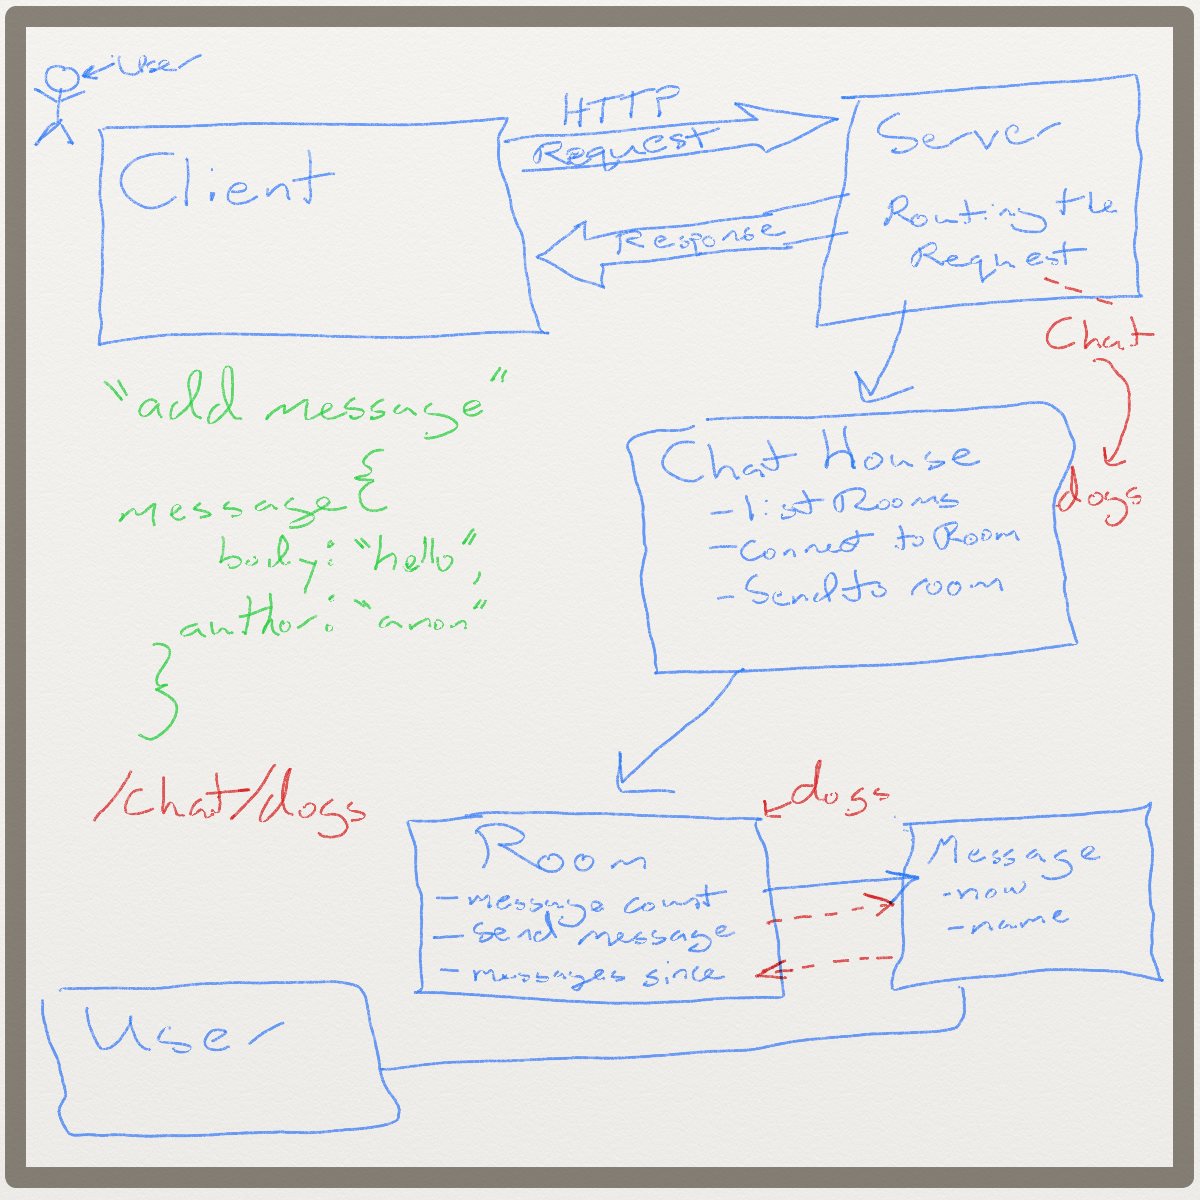 User
Client
HTTP
Request
Response
Server
Routing the
Request
Chat
dogs
"add message"
message {
body: "hello",
author: "anon"
}
/chat/dogs
Chat House
- list Rooms
- connect to Room
- Send to room
dogs
Room
- message count
- send message
- messages since
Message
- now
- name
User